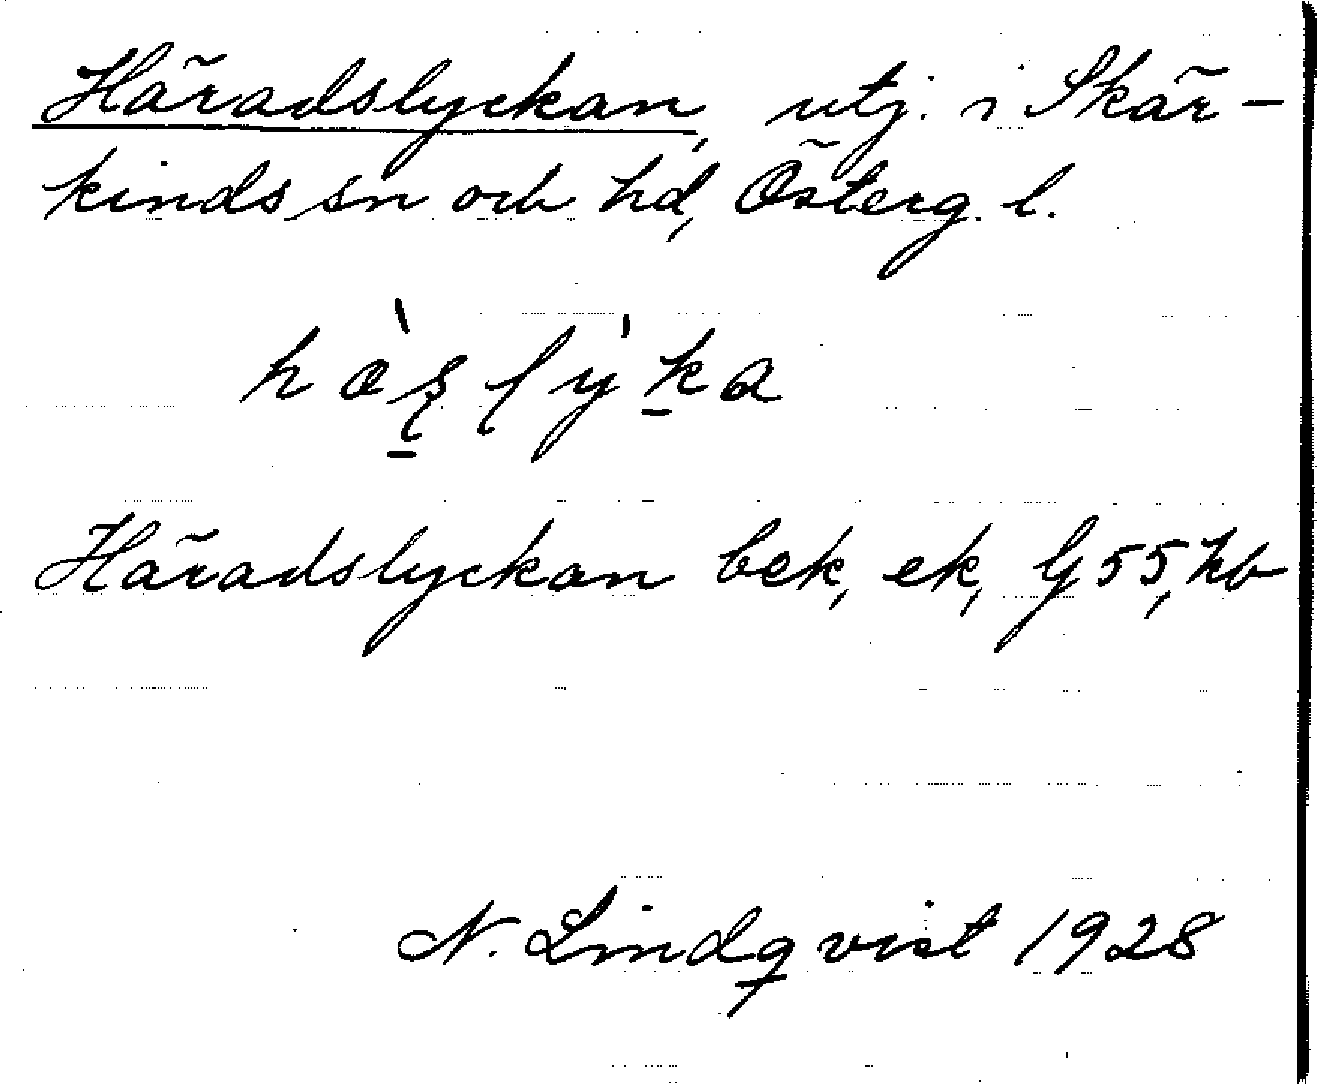 Häradslyckan, utj. i Skär-
kinds sn och hd, Österg. l.
Häradslyckan bek, ek, G 55, kb
N. Lindqvist 1928